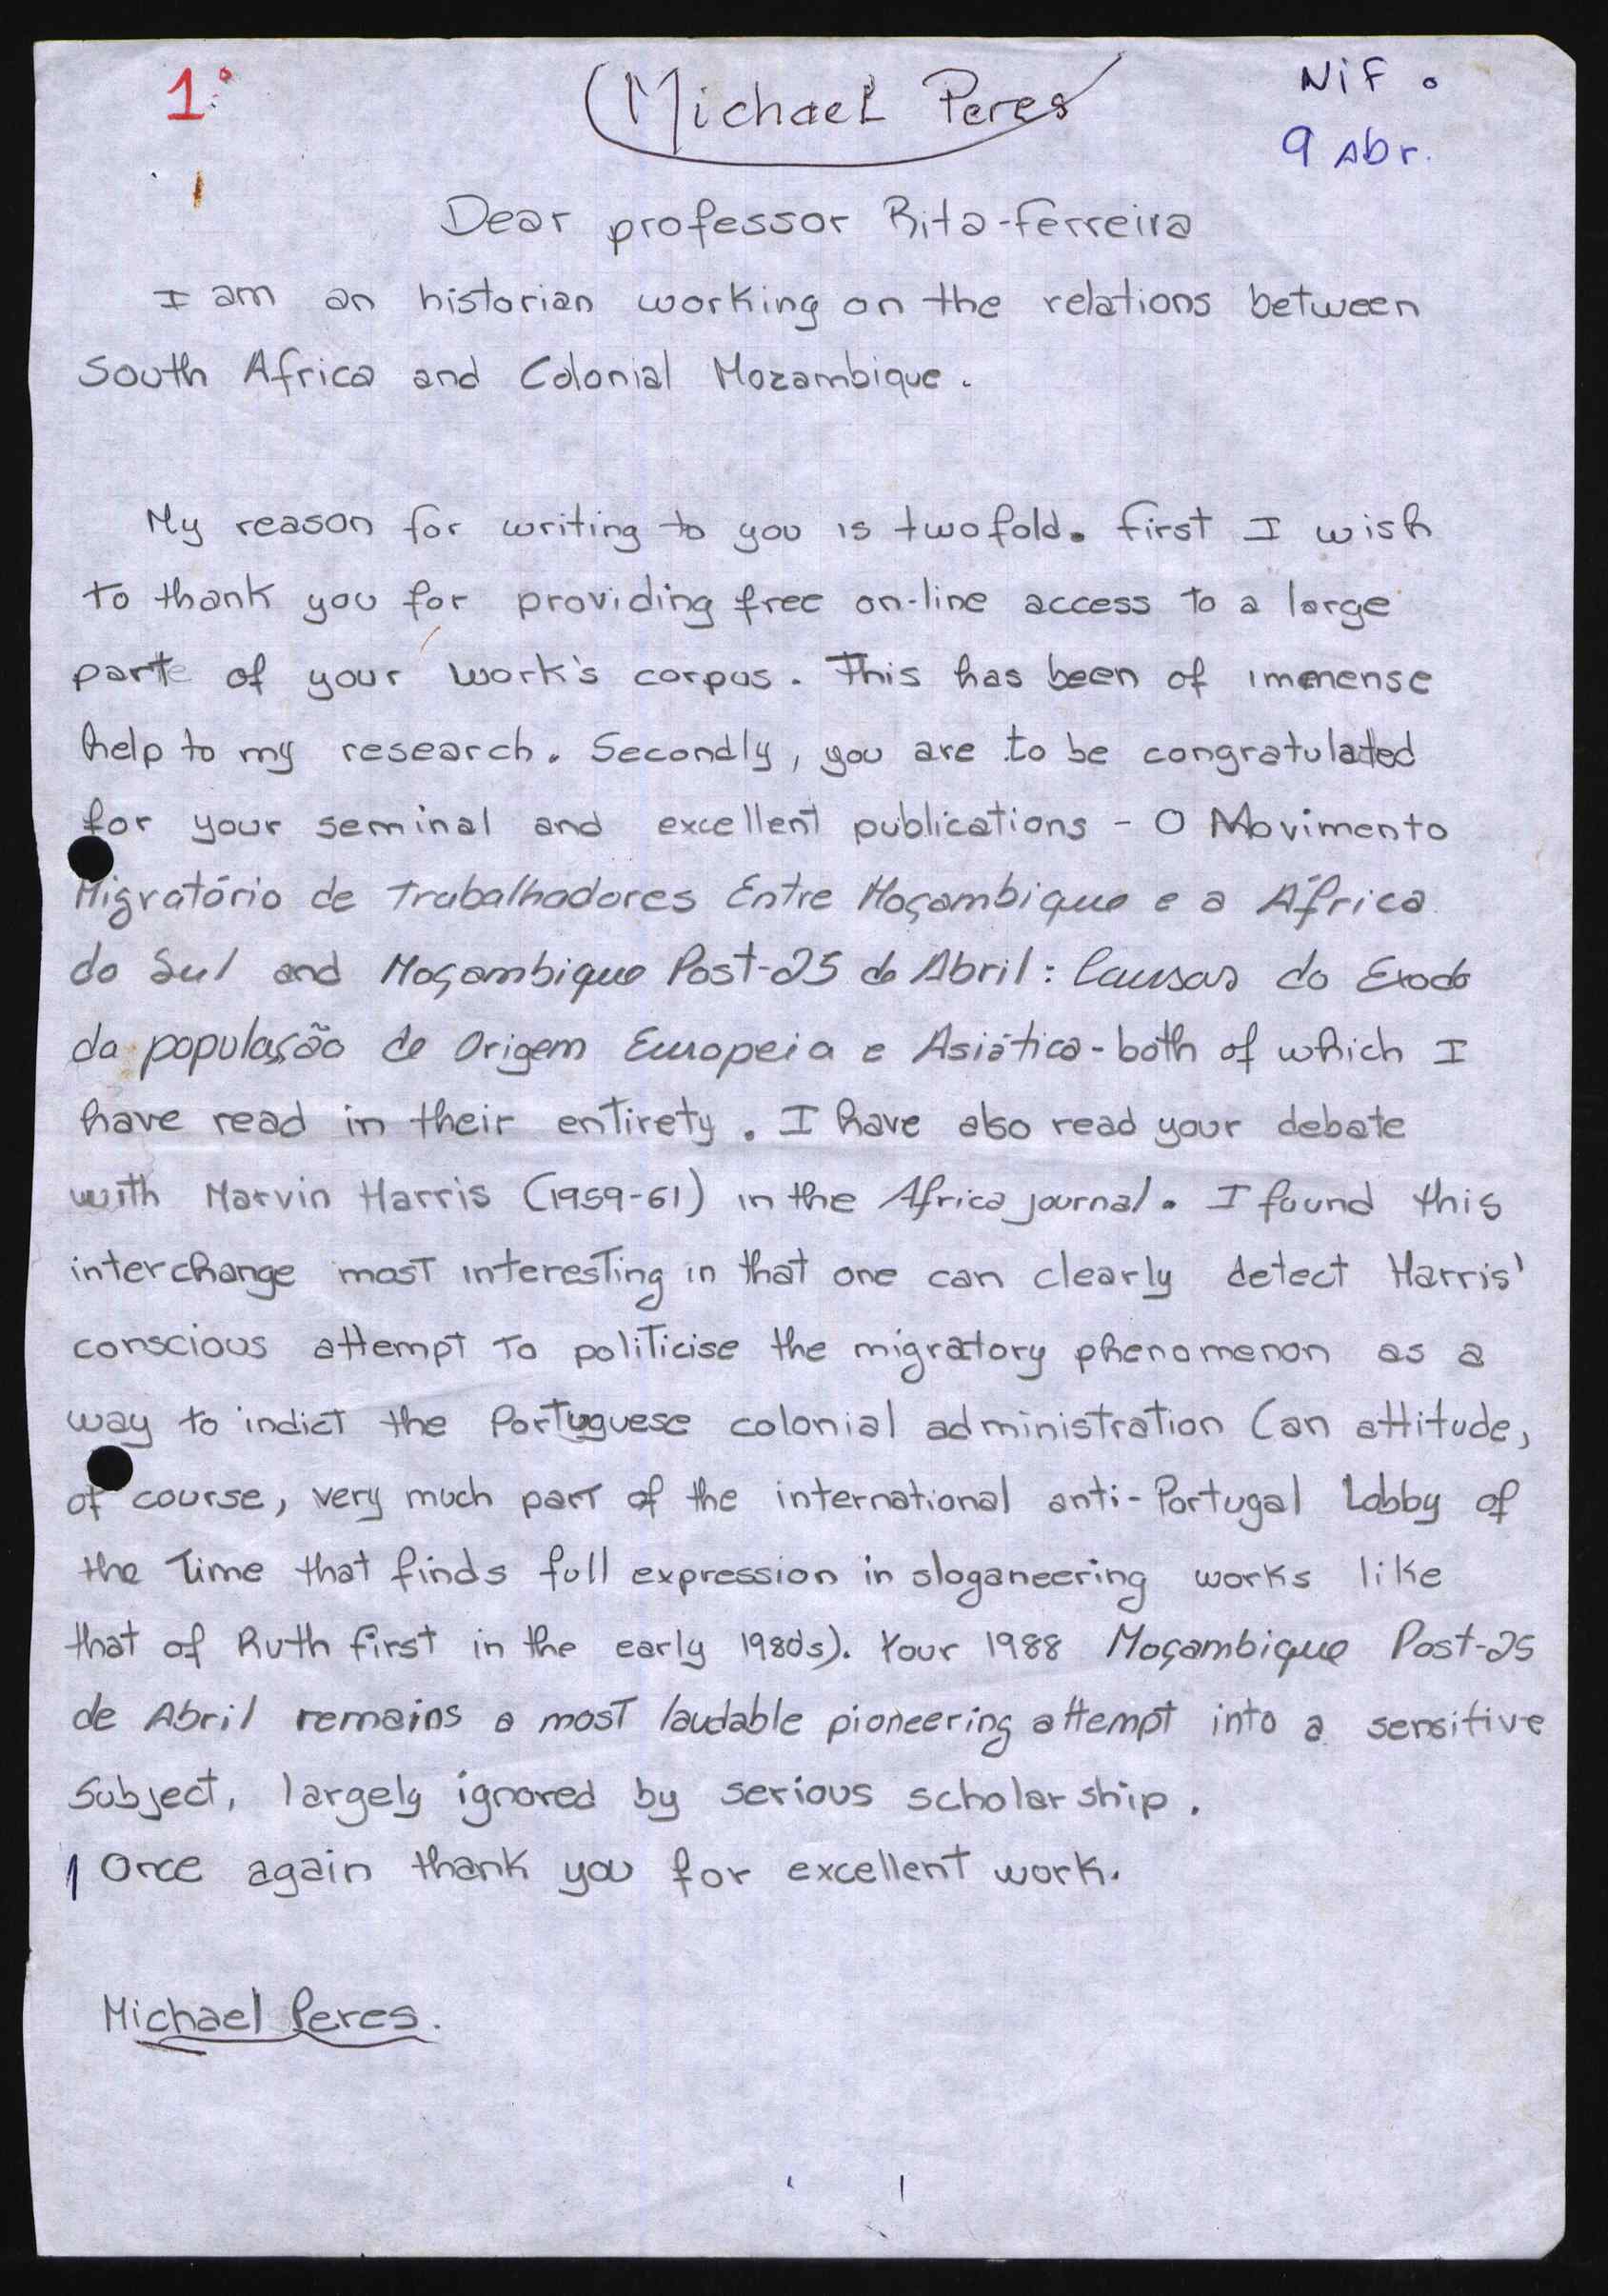 1º
Michael Peres
NiF.
9 Abr.
Dear professor Rita-Ferreira
I am an historian working on the relations between
South Africa and Colonial Mozambique.
My reason for writing to you is twofold. First I wish
to thank you for providing free on-line access to a large
parte of your work's corpus. This has been of immense
help to my research. Secondly, you are to be congratulated
for your seminal and excellent publications - O Movimento
Migratório de Trabalhadores Entre Moçambique e a África
do Sul and Moçambique Post-25 de Abril: Causas do Exodo
da população de Origem Europeia e Asiática - both of which I
have read in their entirety. I have also read your debate
with Marvin Harris (1959-61) in the Africa journal. I found this
interchange most interesting in that one can clearly detect Harris'
conscious attempt to politicise the migratory phenomenon as a
way to indict the Portuguese colonial administration (an attitude,
of course, very much part of the international anti-Portugal Lobby of
the time that finds full expression in sloganeering works like
that of Ruth First in the early 1980's). Your 1988 Moçambique Post-25
de Abril remains a most laudable pioneering attempt into a sensitive
subject, largely ignored by serious scholarship.
Once again thank you for excellent work.
Michael Peres.